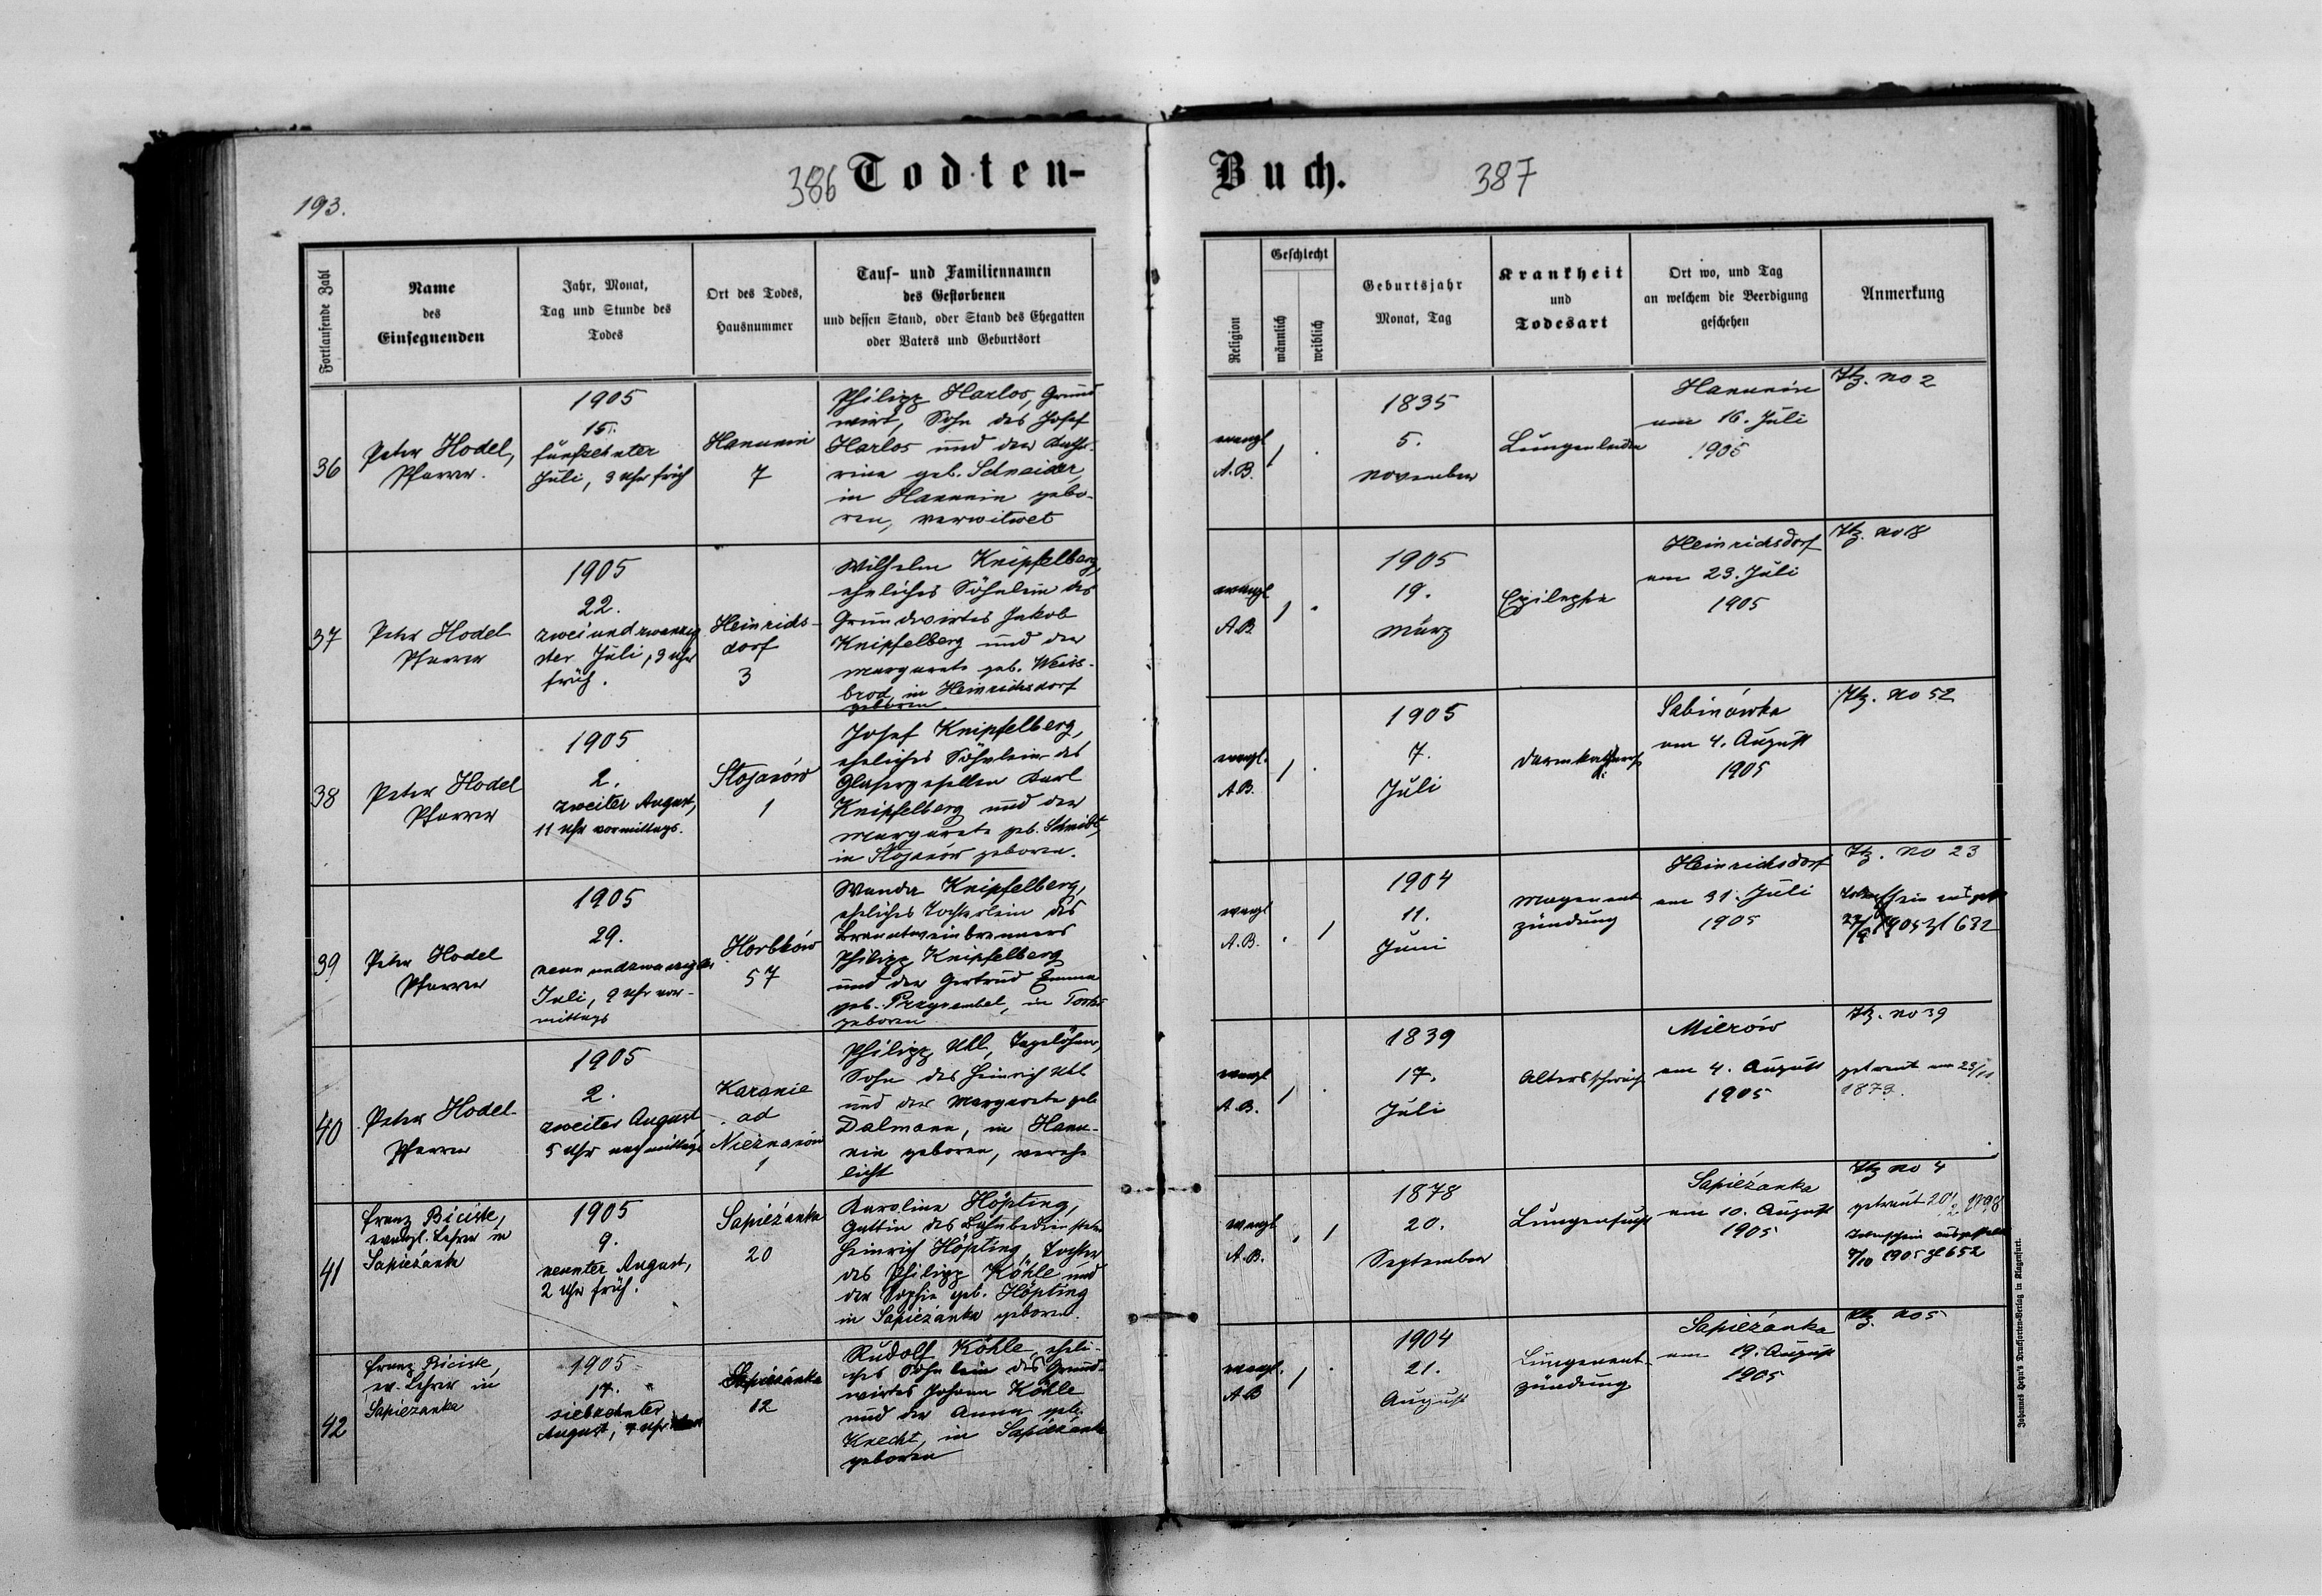 193.
386 Todten-
Buch. 387
Fortlaufende Zahl
Name
des
Einsegnenden
Jahr, Monat,
Tag und Stunde des
Todes
Ort des Todes,
Hausnummer
Tauf- und Familiennamen
des Gestorbenen
und dessen Stand, oder Stand des Ehegatten
oder Vaters und Geburtsort
Religion
Geschlecht
männlich
weiblich
Geburtsjahr
Monat, Tag
Krankheit
und
Todesart
Ort wo, und Tag
an welchem die Beerdigung
geschehen
Anmerkung
36
Peter Hodel,
Pfarrer.
1905
15.
fünfzehnter
Juli, 3 Uhr früh
Hanunin
7
Philipp Harlos, Grund
wirt, Sohn des Josef
Harlos und der Kathe-
rina geb. Schneider,
in Hanunin gebo-
ren, verwitwet
evangl
A.B.
1
.
1835
5.
November
Lungenleiden
Hanunin
am 16. Juli
1905
Ktz. No 2
37
Peter Hodel
Pfarrer
1905
22.
zweiundzwanzig
ster Juli, 3 Uhr
früh.
Heinrichs-
dorf
3
Wilhelm Knipfelberg,
eheliches Söhnlein des
Grundwirtes Jakob
Knipfelberg und der
Margarete geb. Weiss-
brod, in Heinrichsdorf
geboren
evangl
A.B
1
.
1905
19.
März
Epilepsie
Heinrichsdorf
am 23. Juli
1905
Ktz. No 8
38
Peter Hodel
Pfarrer
1905
2.
zweiter August,
11 Uhr vormittags.
Stojanów
1
Josef Knipfelberg,
eheliches Söhnlein des
Glasergesellen Karl
Knipfelberg und der
Margarete geb. Schmidt,
in Stojanów geboren.
evangl.
A.B.
1
.
1905
7.
Juli
Darmkatarrh
Sabinówka
am 4. August
1905
Ktz. No 52
39
Peter Hodel
Pfarrer
1905
29.
neunundzwanzigster
Juli, 9 Uhr vor-
mittags
Horbków
57
Wanda Knipfelberg,
eheliches Töchterlein des
Branntweinbrenners
Philipp Knipfelberg
und der Gertrud Emma
geb. Przyrembel, in
geboren
evangl
A.B.
.
1
1904
11.
Juni
Magenent
zündung
Heinrichsdorf
am 31. Juli
1905
Ktz. No 23
1905 Zl 632
40
Peter Hodel
Pfarrer
1905
2.
zweiter August
5 Uhr nachmittags
Karanie
ad
Nieznanów
1
Philipp Uhl, Tagelöhner,
Sohn des Heinrich Uhl
und der Margarete geb.
Dalmann, in Hanu-
nin geboren, verehe
licht
evangl
A.B.
1
.
1839
17.
Juli
Altersschwäche
Mierów
am 4. August
1905
Ktz. No 39
getraut am 23/11
1873.
41
Franz Biciste,
evangl. Lehrer in
Sapieżanka
1905
9.
neunter August,
2 Uhr früh.
Sapieżanka
20
Karolina Höpting,
Gattin des Bahnbediensteten
Heinrich Höpting, Tochter
des Philipp Köhle und
der Sophie geb. Höpting
in Sapieżanka geboren.
evangl
A.B.
.
1
1878
20.
September
Lungensucht
Sapieżanka
am 10. August
1905
Ktz No 4
getraut 20/2 1898
Totenschein ausgestellt
4/10 1905 Zl 652
42
Franz Biciste,
ev. Lehrer in
Sapieżanka
1905
17.
siebzehnter
August,
Sapieżanka
12
Rudolf Köhle, eheli-
ches Söhnlein des Grund-
wirtes Johann Köhle
und der Anna geb.
Knecht, in Sapieżanka
geboren
evangl.
A.B
1
.
1904
21.
August
Lungenent-
zündung
Sapieżanka
am 19. August
1905
Ktz. No 5
Johannes Heyn's Drucksorten-Verlag in Klagenfurt.